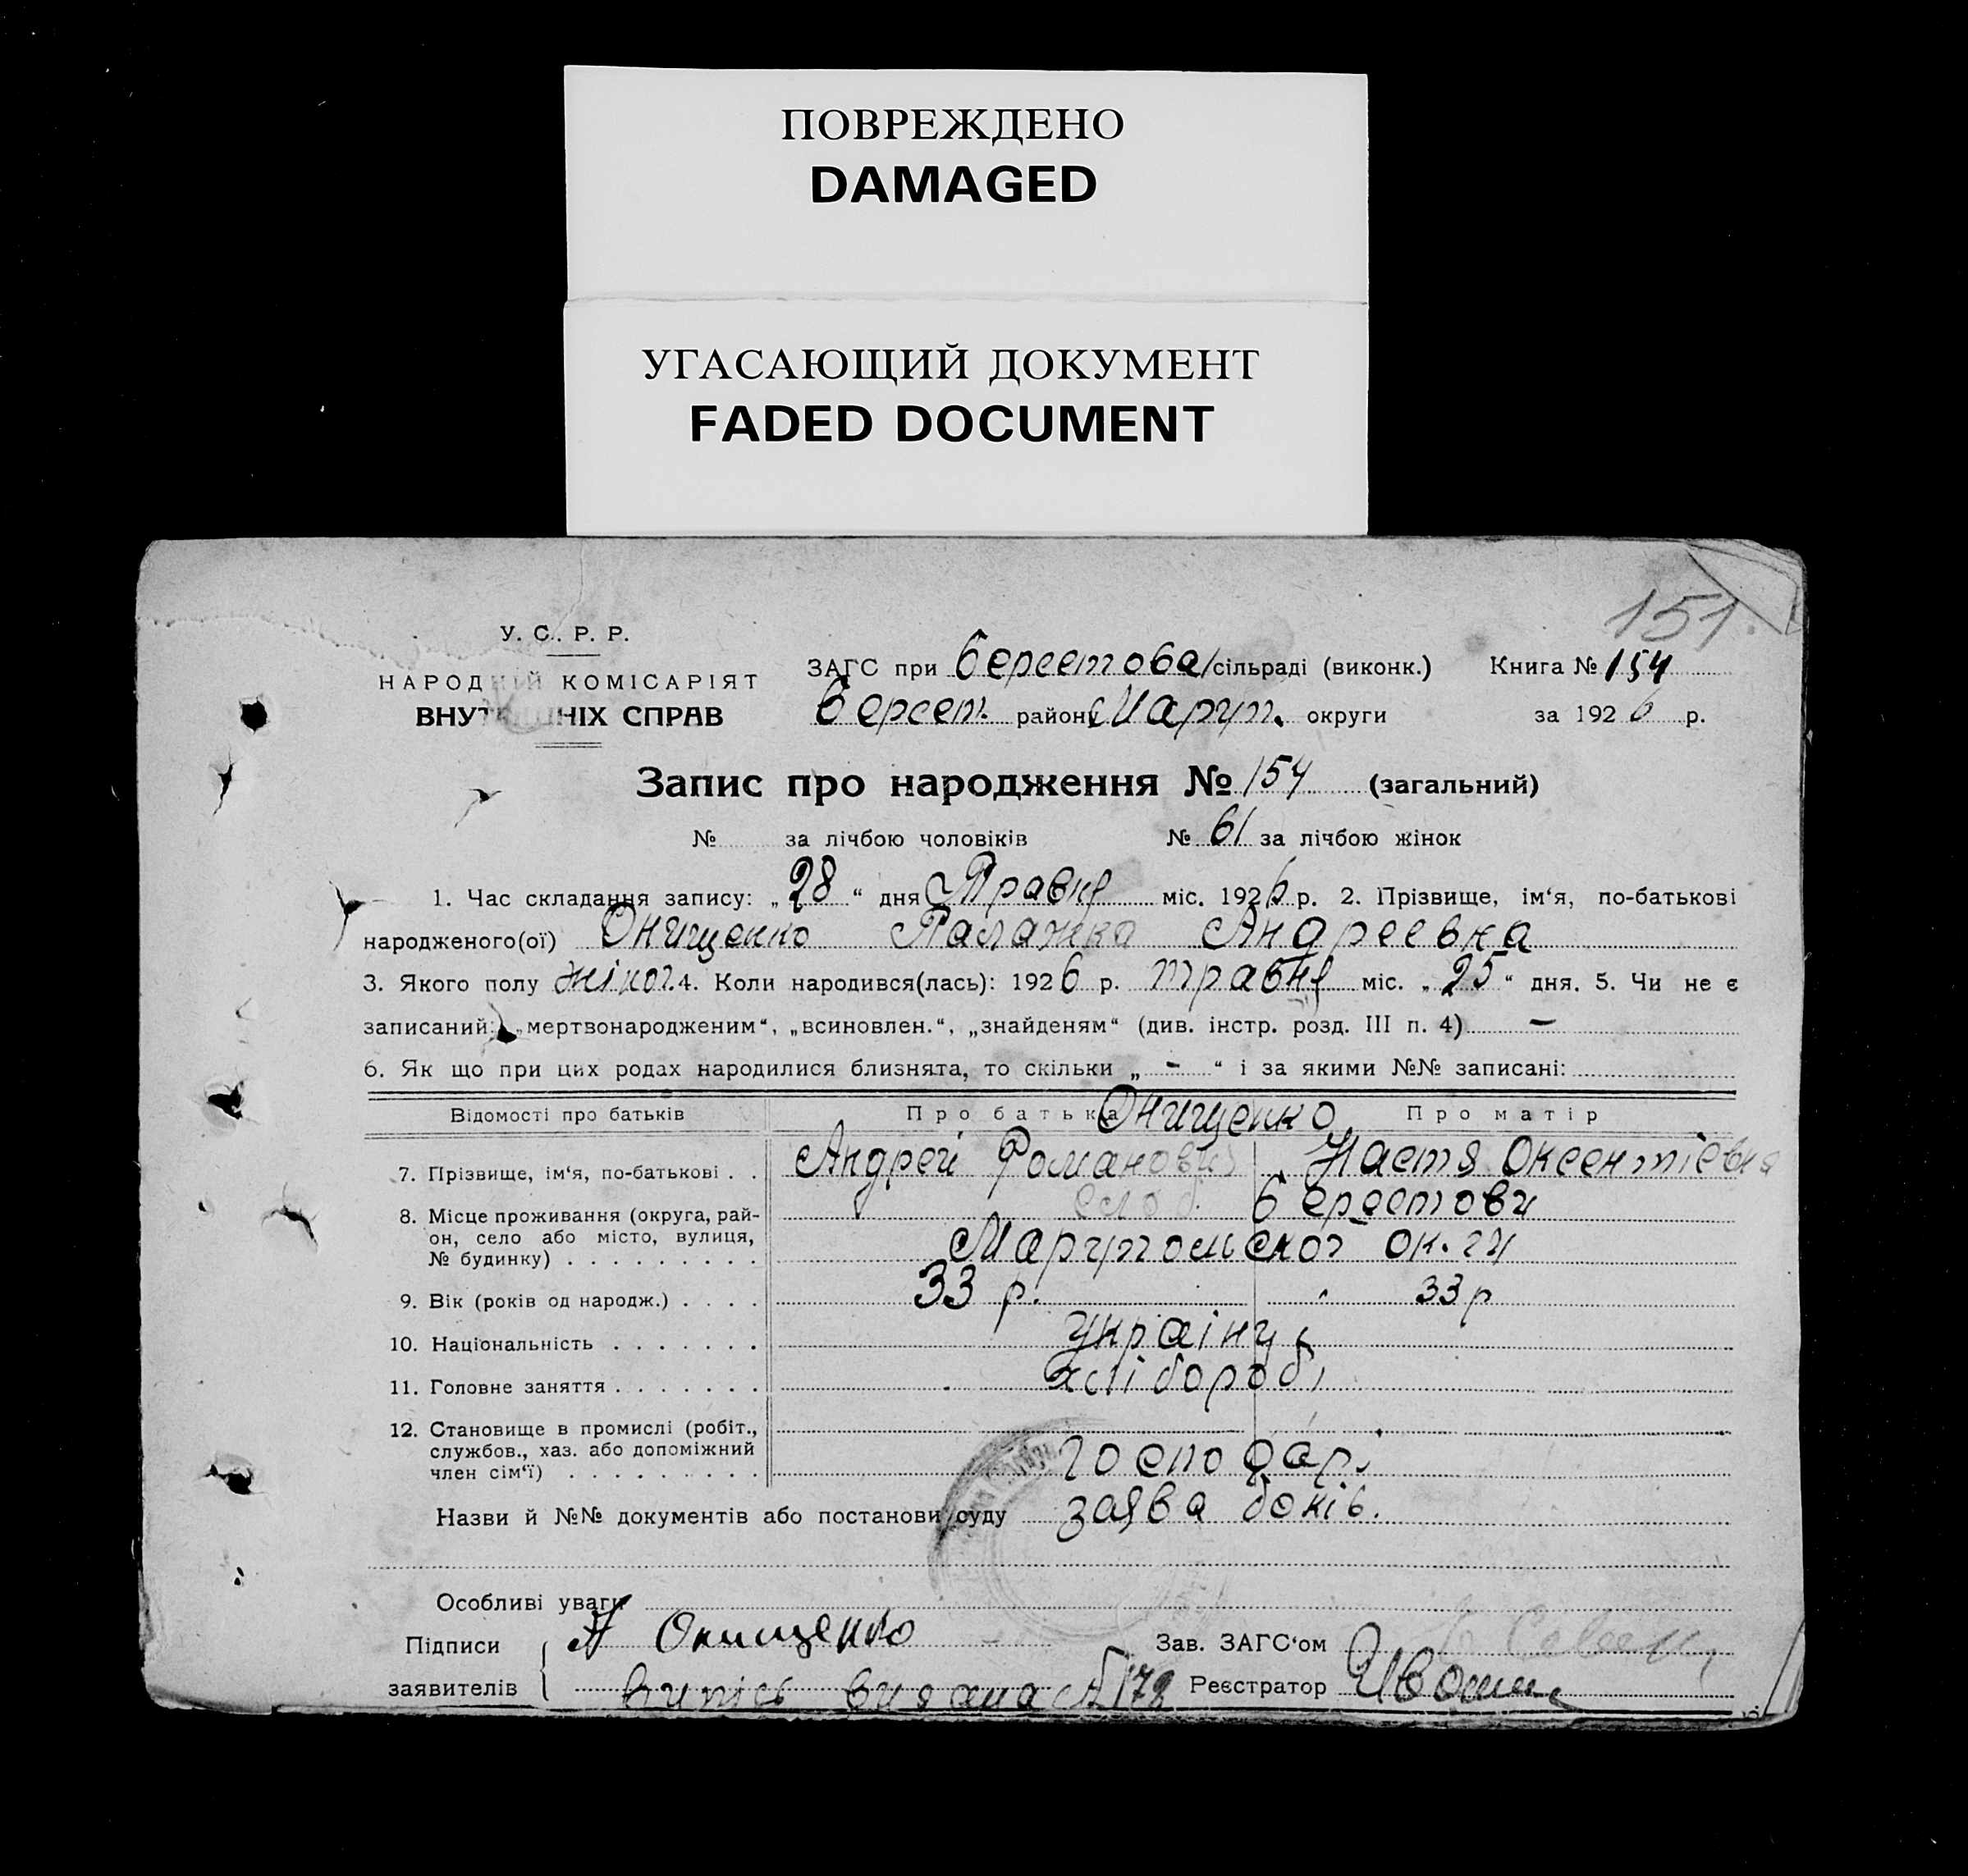 ПОВРЕЖДЕНО
DAMAGED
УГАСАЮЩИЙ ДОКУМЕНТ
FADED DOCUMENT
151.
У. С. Р. Р.
НАРОДНІЙ КОМІСАРІЯТ
ВНУТРІШНІХ СПРАВ
ЗАГС при Берестова/сільраді (виконк.) Книга № 154
Берест. району Маріуп. округи за 1926 р.
Запис про народження № 154 (загальний)
№ за лічбою чоловіків № 61 за лічбою жінок
1. Час складання запису: „28“ дня Травня міс. 1926 р. 2. Прізвище, ім‘я, по-батькові
народженого(ої) Онищенко Палажка Андреевна
3. Якого полу жіноч. 4. Коли народився(лась): 1926 р. травня міс. „25“ дня. 5. Чи не є
записаний: „мертвонародженим“, „всиновлен.“, „знайденям“ (див. інстр. розд. III п. 4) —
6. Як що при цих родах народилися близнята, то скільки „ - “ і за якими №№ записані:
Відомості про батьків Про батька Онищенко Про матір
7. Прізвище, ім‘я, по-батькові . . Андрей Романович Настя Оксентіевна
8. Місце проживання (округа, рай- слоб. Берестови
он, село або місто, вулиця,
№ будинку) . . . . . . . . . Маріупольскої ок.ги
9. Вік (років од народж.) . . . . 33 р. 33 р
10. Національність . . . . . . . україну
11. Головне заняття . . . . . . . хлібороб,
12. Становище в промислі (робіт.,
службов., хаз. або допоміжний
член сім‘ї) . . . . . . . . . господарі
Назви й №№ документів або постанови суду заява боків.
Особливі уваги
Підписи А Онищенко Зав. ЗАГС‘ом
заявителів випись видана № 178 Реєстратор